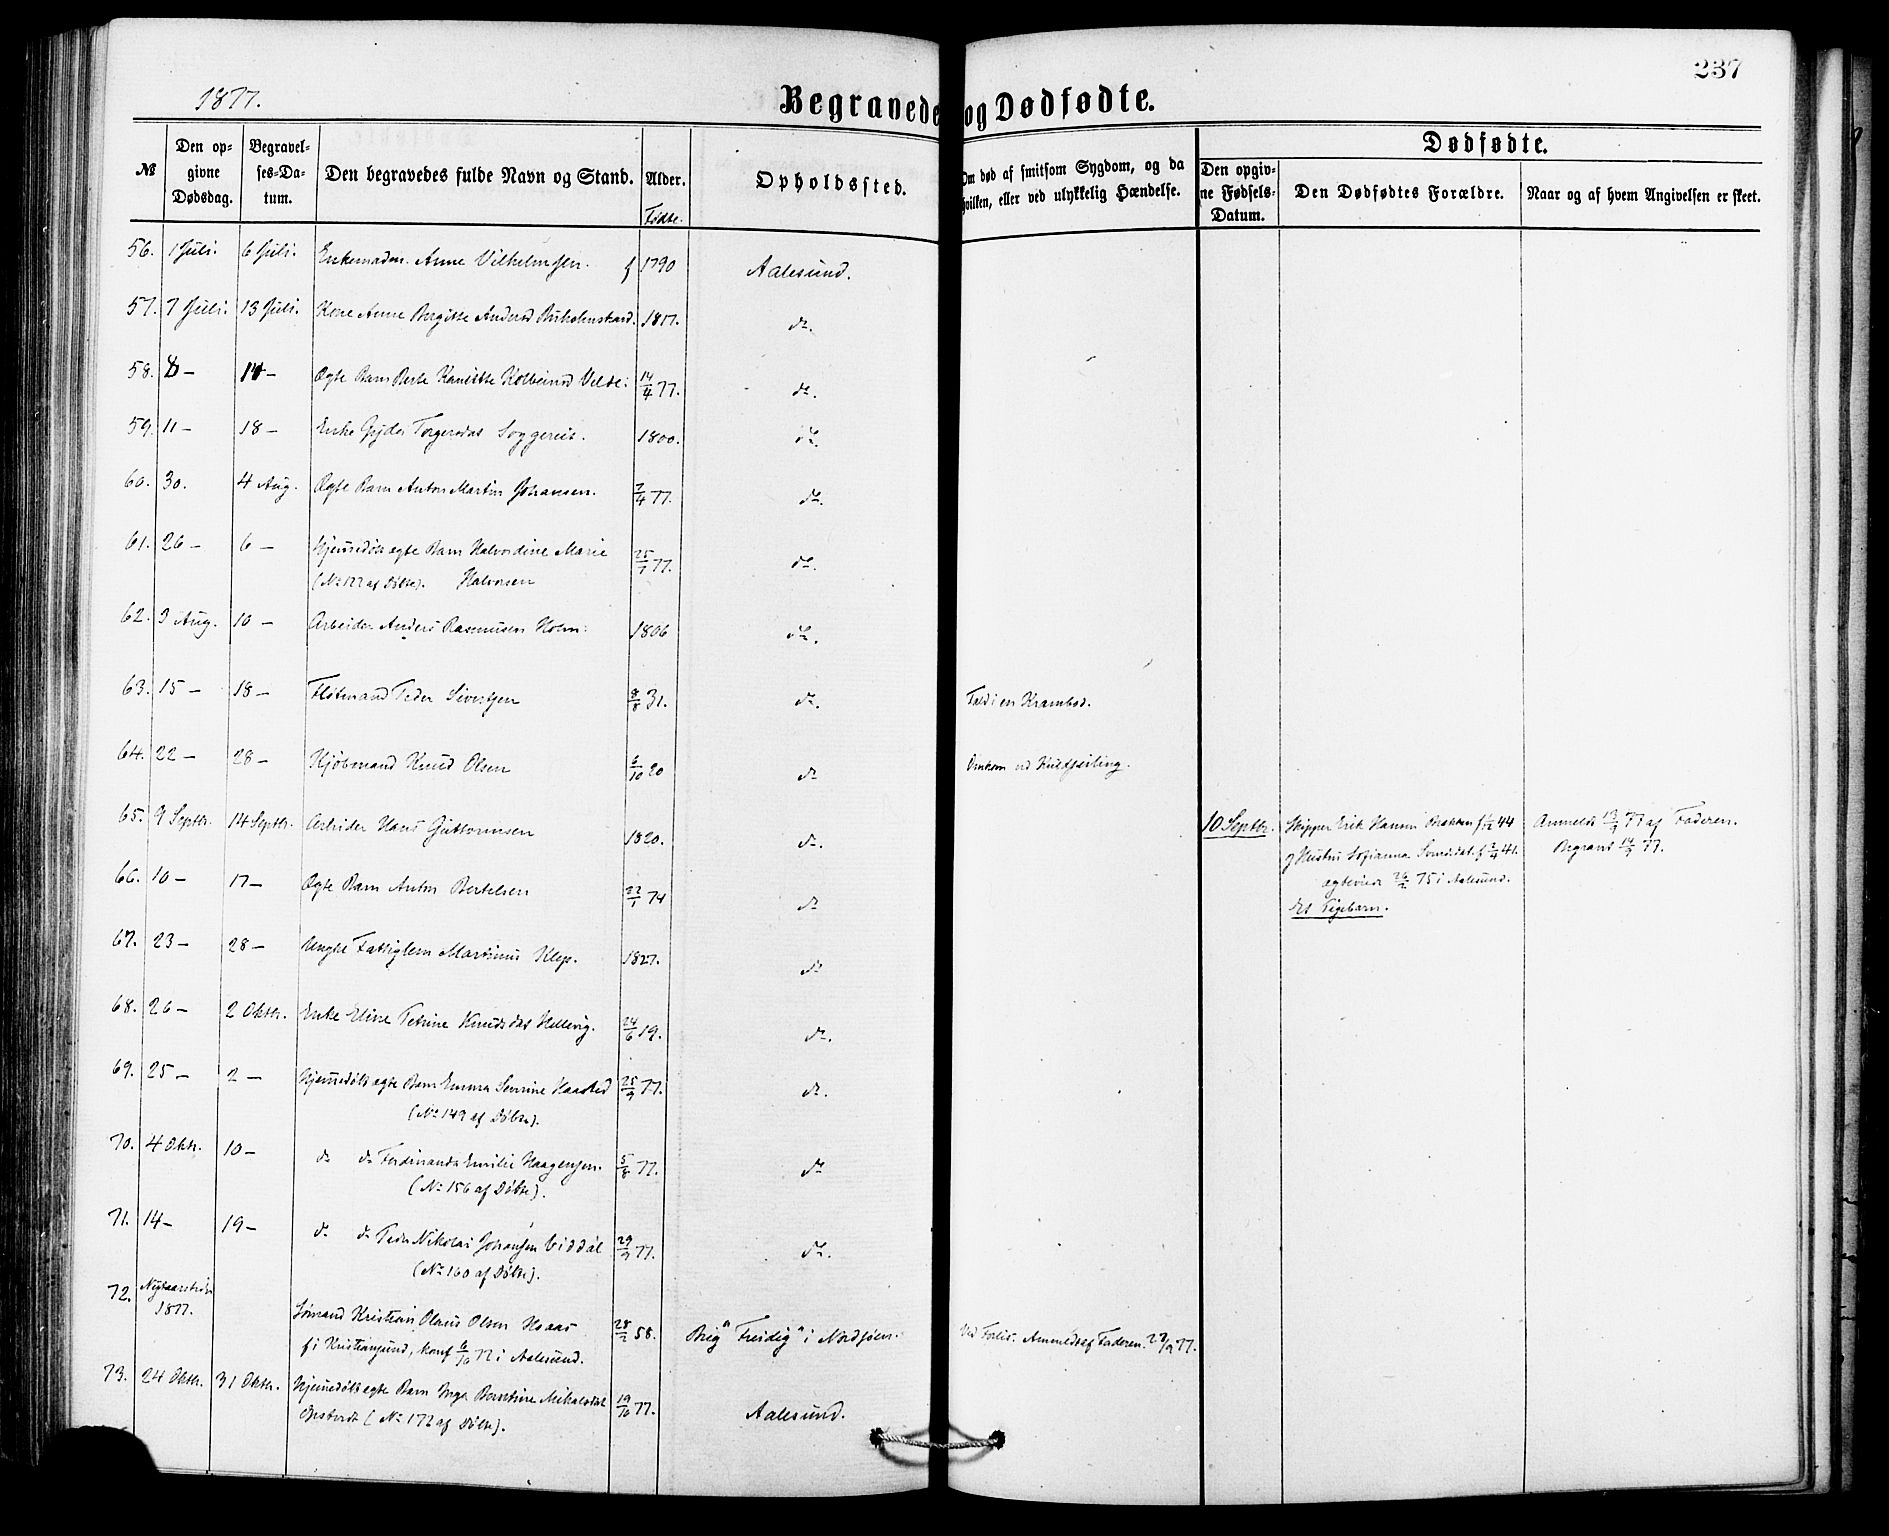 237
1877.
Begravede og Dødfødte.
Dødfødte.
№ | Den opgivne Dødsdag. | Begravelses-Datum. | Den begravedes fulde Navn og Stand. | Alder. Fødte. | Opholdssted. | Om død af smitsom Sygdom, og da hvilken, eller ved ulykkelig Hændelse. | Den opgivne Fødsels-Datum. | Den Dødfødtes Forældre. | Naar og af hvem Angivelsen er skeet.
56. 1 Juli. 6 Juli. Enkemadm. Anne Vilhelmsen. f 1790 Aalesund.
57. 7 Juli. 13 Juli. Kone Anne Bergitte Andersd 1817. do.
58. 8 – 14 – Ægte Barn Berte Kolbeinsd Velde. 14/4 77. do.
59. 11 – 18 – Enke Torgersdat 1800. do.
60. 30. 4 Aug. Ægte Barn Anton Martin Johansen. 2/4 77. do.
61. 26 – 6 – Hjemedøbt ægte Barn Halvordine Marie 25/7 77. do.
(No 122 af Døbte). Halvorsen
62. 3 Aug. 10 – Arbeider Anders Rasmusen Holm. 1806 do.
63. 15 – 18 – Flotmand Peder Sivertsen 8/8 31. do. Fald i en Krambod.
64. 22 – 28 – Kjøbmand Knud Olsen 6/10 20 do Omkom ved Kulseiling.
65. 9 Septbr. 14 Septbr. Arbeider Hans Guttormsen 1820. do. 10 Septbr. Skipper Erik Hansen Bakken f 1/12 44 Anmeldt 13/9 77 af Faderen.
og Hustru f 2/4 41. Begravet 14/9 77.
ægteviede 26/2 75 i Aalesund.
et Pigebarn.
66. 10 – 17 – Ægte Barn Anton Bertelsen 22/1 74 do
67. 23 – 28 – Ungkl Fattiglem Martinus Klep. 1827. do
68. 26 – 2 Oktbr. Enke Eline Petrine Knudsdat Hellevig. 24/6 19. do.
69. 25 – 2 – Hjemedøbt ægte Barn Emma Severine Haasted 25/9 77. do.
(No 149 af Døbte).
70. 4 Oktr. 10 – do do Ferdinanda Emilie Haagensen. 5/8 77. do
(No 156 af Døbte).
71. 14 – 19 – do do Peder Nikolai Johansen Viddal 29/9 77. do.
(No 160 af Døbte).
72. 1877. Sømand Kristian Olaus Olsen 28/2 58. Brig "Freidig" i Nordsjøen. Ved Forlis. Anmeldt af Faderen. 22/9 77.
f i Kristiansund, konf 6/10 72 i Aalesund.
73. 24 Oktbr. 31 Oktbr. Hjemedøbt ægte Barn Inga Berntine Mikalsdat 19/10 77. Aalesund.
(No 172 af Døbte).